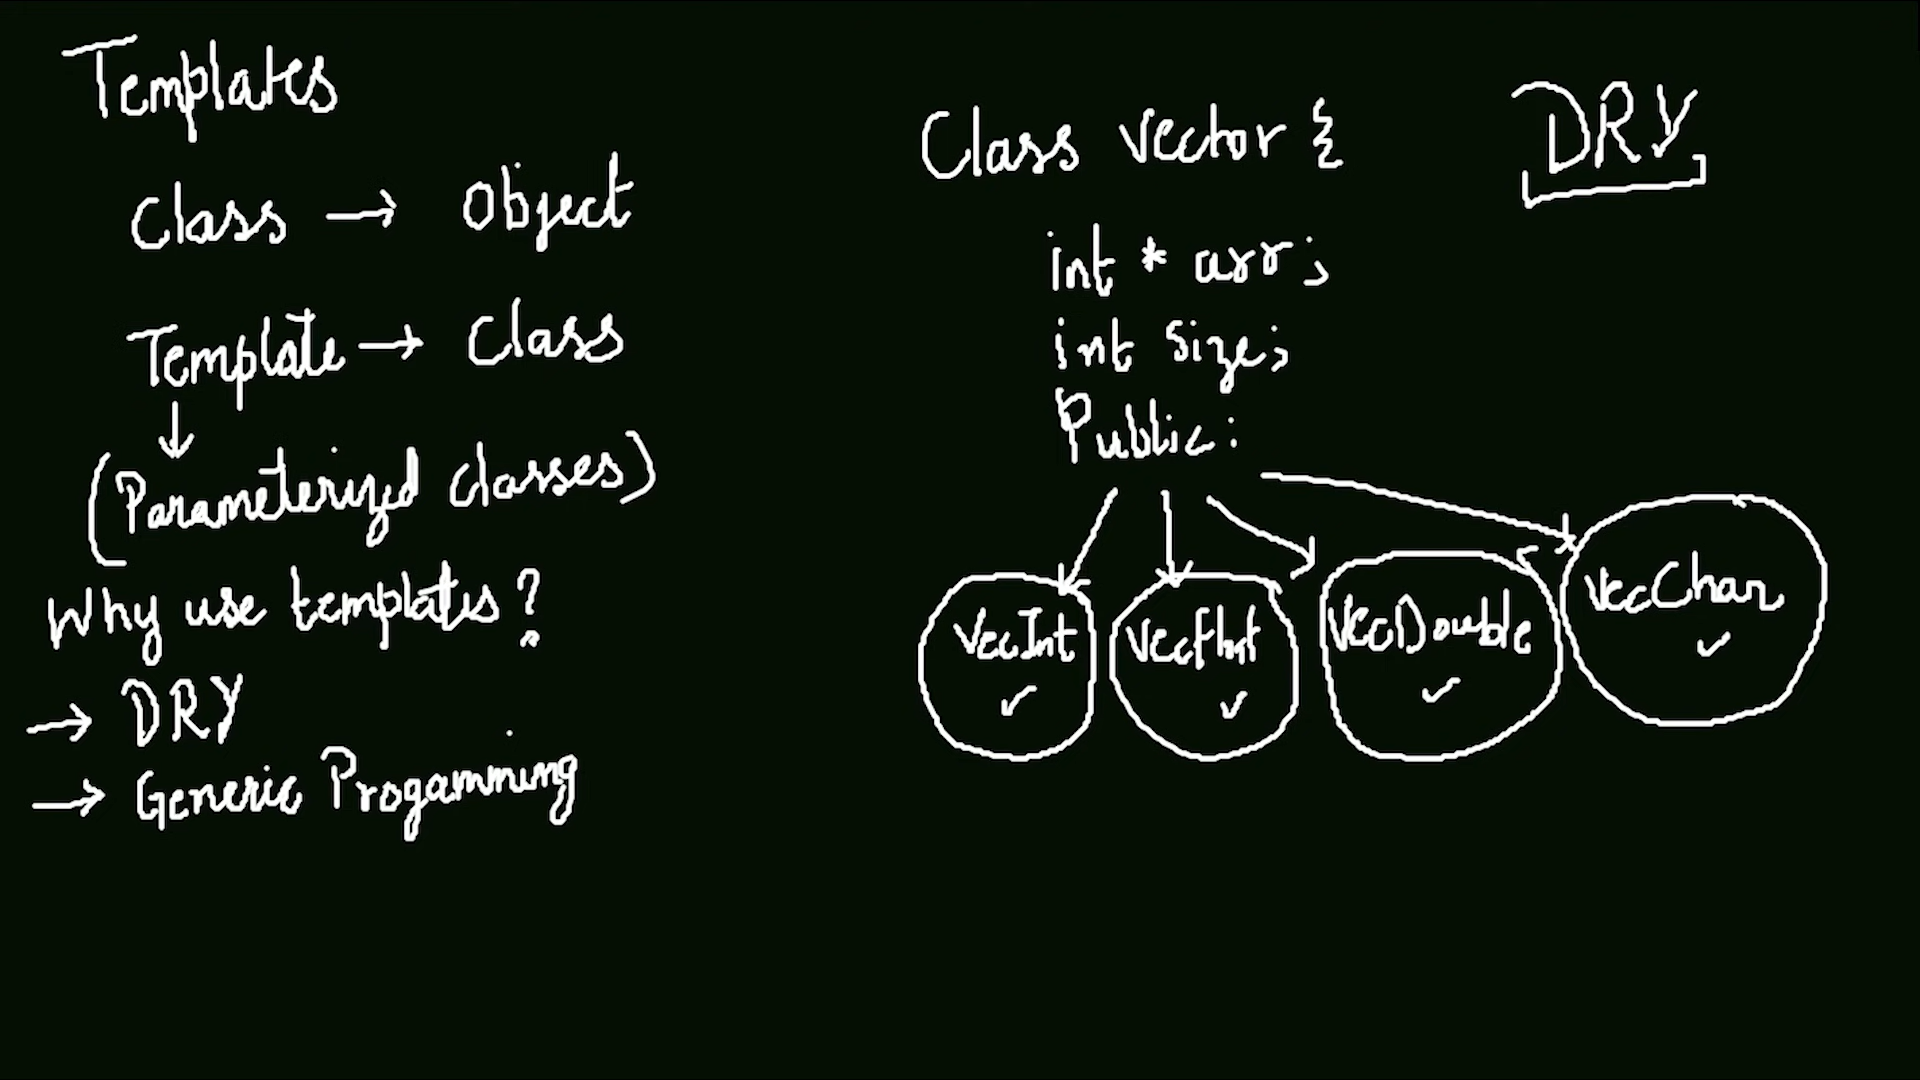 Templates
Class → Object
Template → Class
↓
(Parameterized classes)
Why use templates?
→ DRY
→ Generic Progamming
Class Vector {
int * arr;
int size;
Public:
VecInt ✓
VecFloat ✓
VecDouble ✓
VecChar ✓
DRY